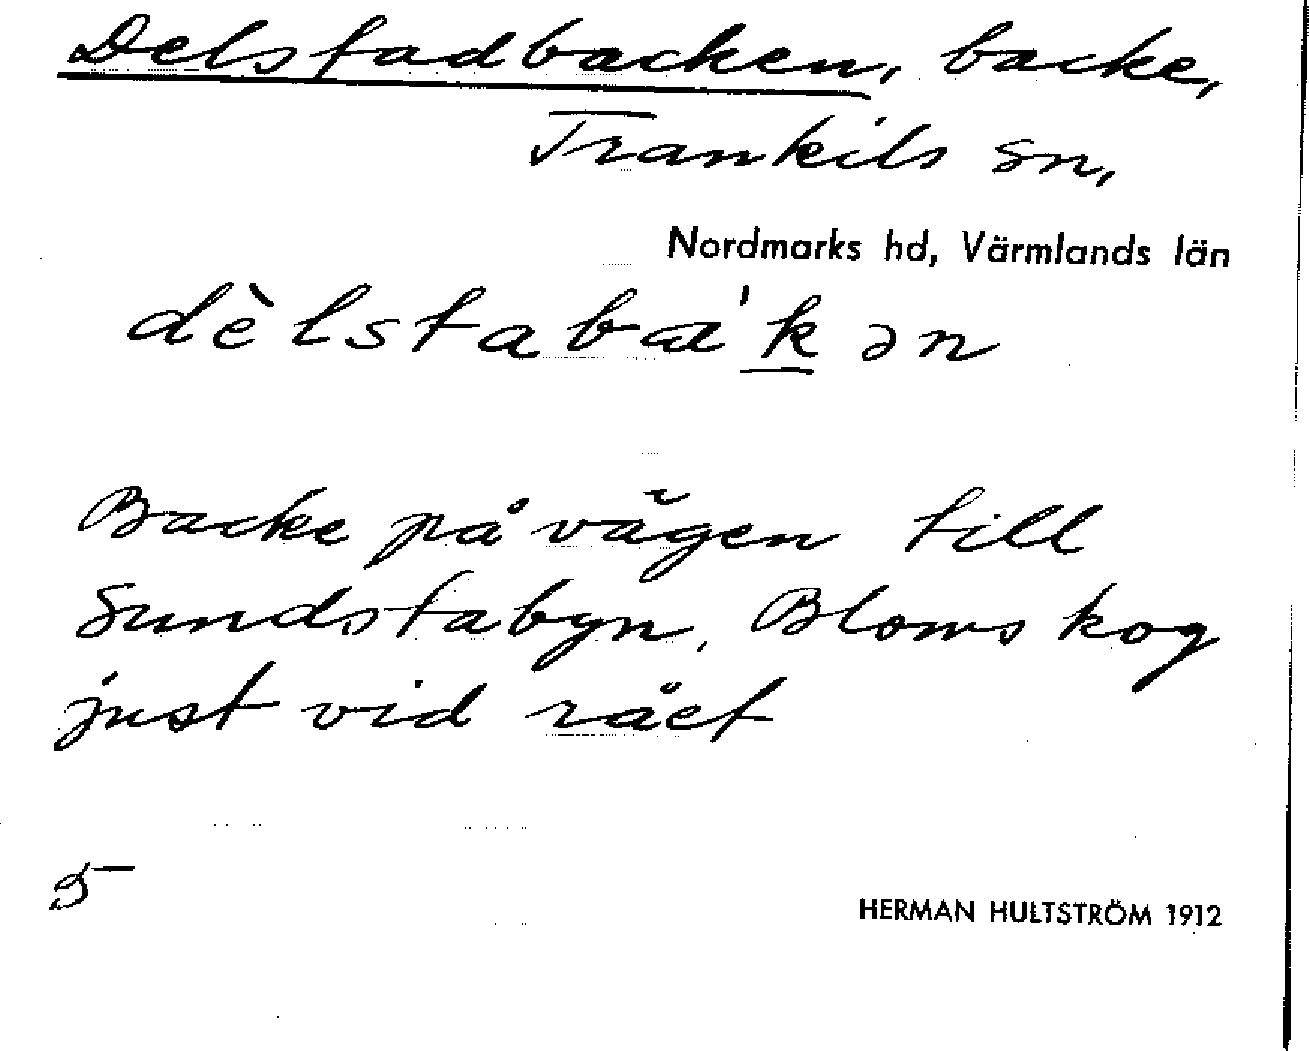 Delstadbacken, backe,
Trankils sn,
Nordmarks hd, Värmlands län
dèlstabaˈk̲ən
Backe på vägen till
Sundstabyn, Blomskog
just vid rået
5
HERMAN HULTSTRÖM 1912